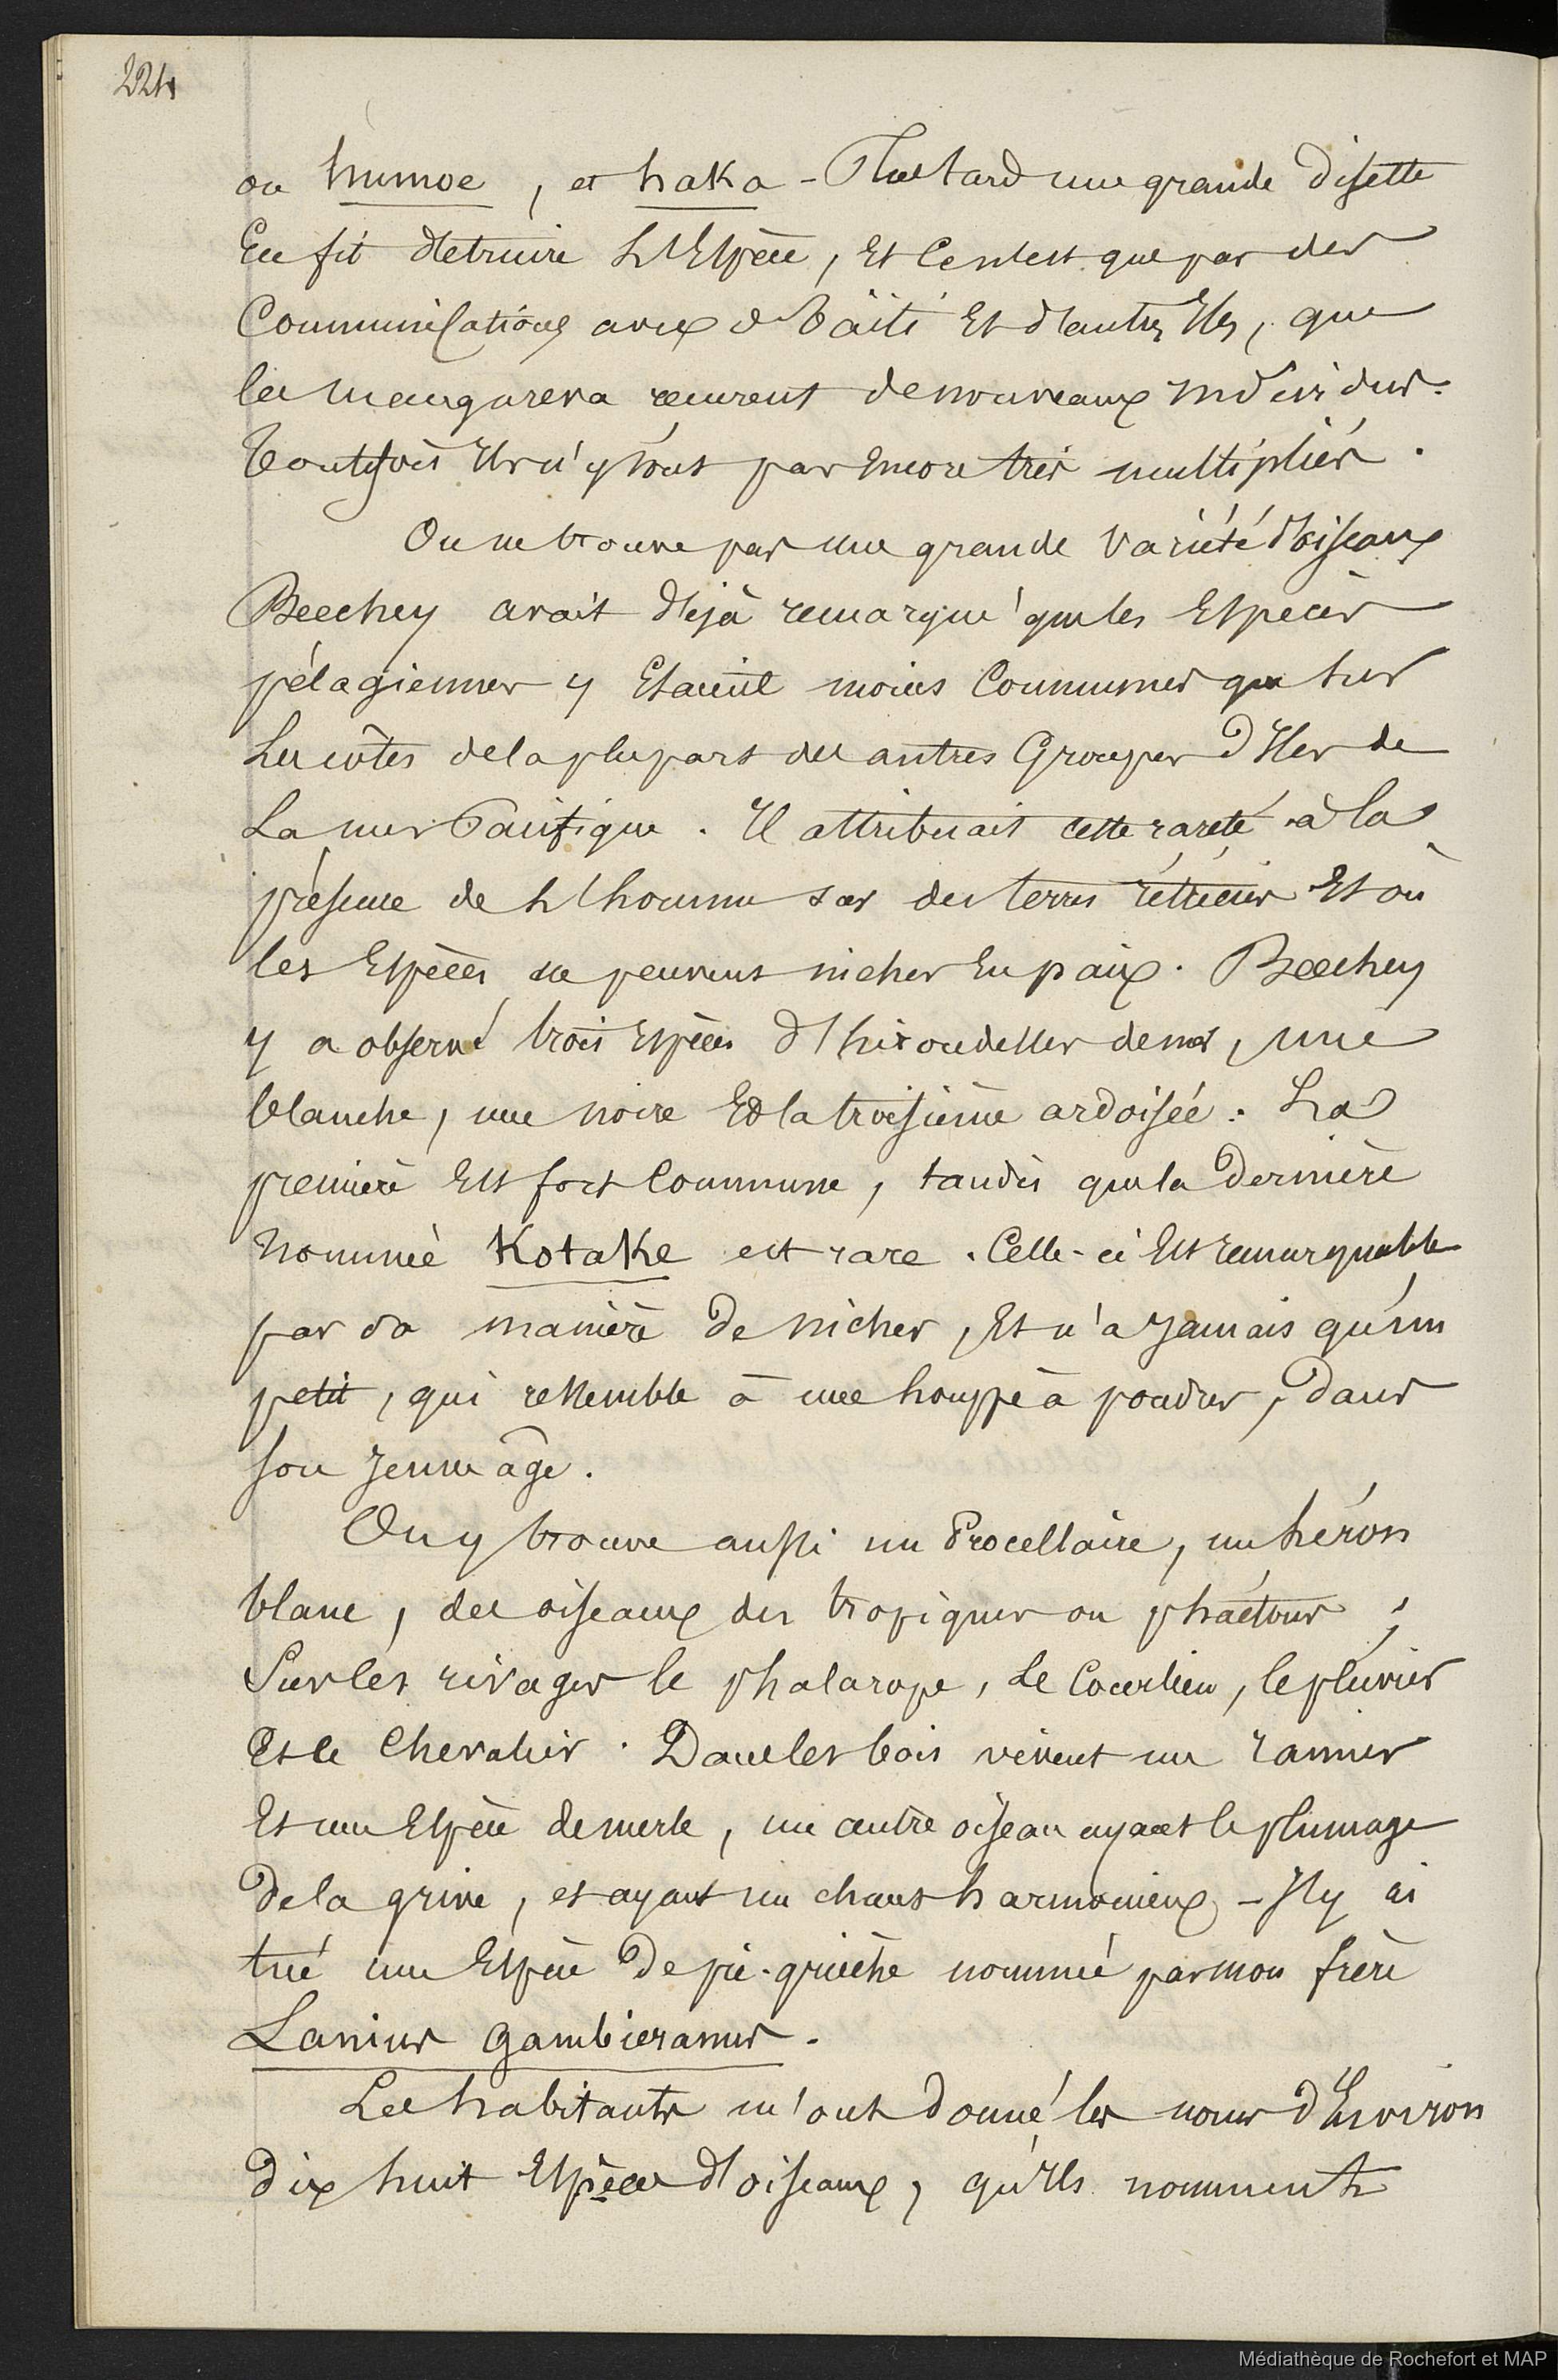 224
ou humoe, et haka - Plus tard une grande disette
En fit détruire L'Espèce, Et Ce n'est que par des
Communications avec Taïti Et d'autres Iles, que
les mangareva reçurent de nouveaux individus.
Toutefois Ils n'y sont pas Encore très multipliés.
On ne trouve pas une grande Variété d'oiseaux
Beechey avait déjà remarqué que les Espèces
pélagiennes y Etaient moins Communes que sur
Les côtes de la plupart des autres Groupes d'Iles de
La mer Pacifique. Il attribuait cette rareté à la
présence de L'homme sur des terres rétrécies Et où
les Espèces ne peuvent nicher En paix. Beechey
y a observé trois Espèces d'hirondelles de mer, une
blanche, une noire Et la troisième ardoisée. La
première Est fort Commune, tandis que la Dernière
Nommée Kotake est rare. Celle-ci Est remarquable
par sa manière de nicher, Et n'a Jamais qu'un
petit, qui ressemble à une houppe à poudrer, Dans
son Jeune âge.
On y trouve aussi un Procellaire, un héron
blanc, des oiseaux des tropiques ou phaétons;
Sur les rivages le phalarope, Le Courlieu, le pluvier
Et le Chevalier. Dans les bois vivent un ramier
Et une Espèce de merle, un autre oiseau ayant le plumage
De la grive, et ayant un chant harmonieux - J'y ai
tué une Espèce De pie-grièche nommée par mon frère
Lanius gambieranus.
Les habitants m'ont Donné les noms d'Environ
Dix huit Espèces d'oiseaux, qu'Ils nomment
Médiathèque de Rochefort et MAP